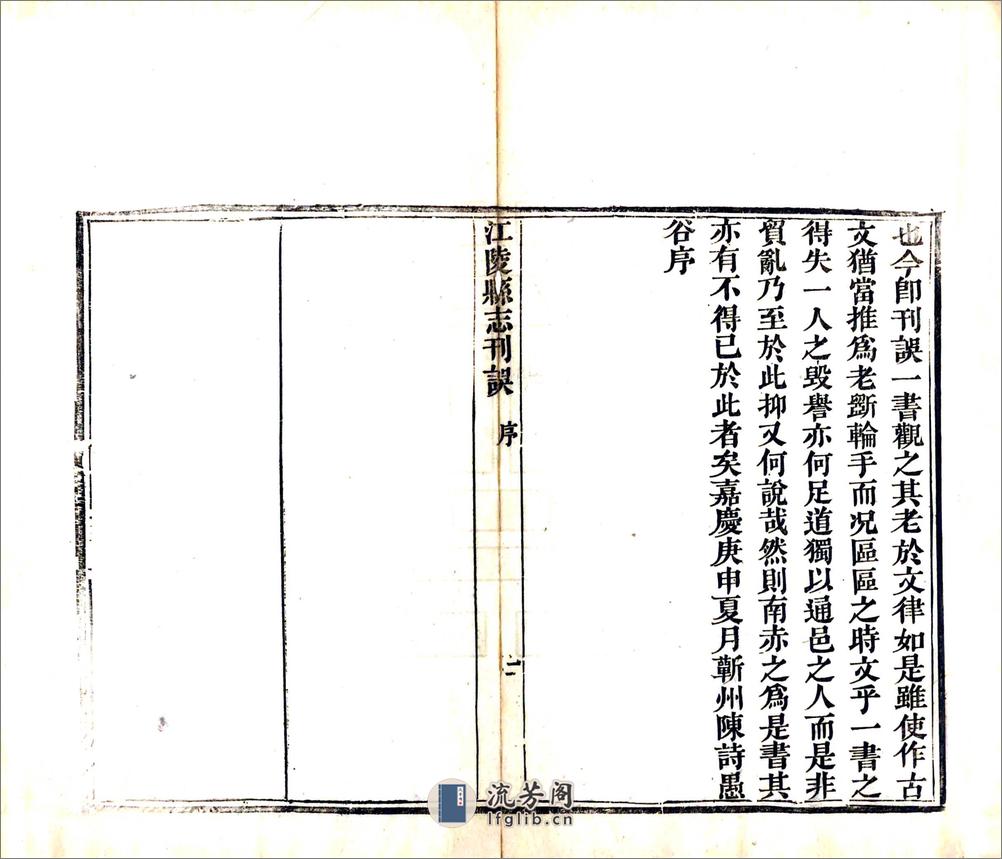 也今卽刊誤一書觀之其老於文律如是雖使作古
文猶當推爲老斵輪手而况區區之時文乎一書之
得失一人之毀譽亦何足道獨以通邑之人而是非
貿亂乃至於此抑又何說哉然則南赤之爲是書其
亦有不得已於此者矣嘉慶庚申夏月蘄州陳詩愚
谷序
江陵縣志刊誤 序 二
流芳阁
lfglib.cn